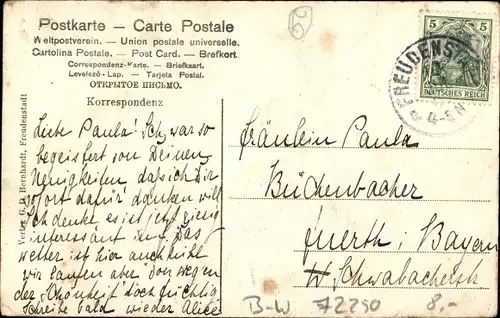 Postkarte – Carte Postale
Weltpostverein. – Union postale universelle.
Cartolina Postale. – Post Card. – Brefkort.
Correspondenz-Karte. – Briefkaart.
Levelező-Lap. – Tarjeta Postal.
ОТКРЫТОЕ ПИСЬМО.
Korrespondenz
Liebe Paula! Ich war so
begeistert von Deinen
Neuigkeiten dass ich Dir
sofort dafür danken will
Ich denke es ist jetzt riesig
interessant in Das
Wetter ist hier auch nicht
wir laufen aber von wegen
der Schönheit doch tüchtig
schreibe bald wieder Alice
Verlag G. Bernhardt, Freudenstadt
5 5
DEUTSCHES REICH
FREUDENST
4-5N
Fräulein Paula
Büchenbacher
Fuerth i Bayern
Schwabacherstr
B-W 72250 8,-